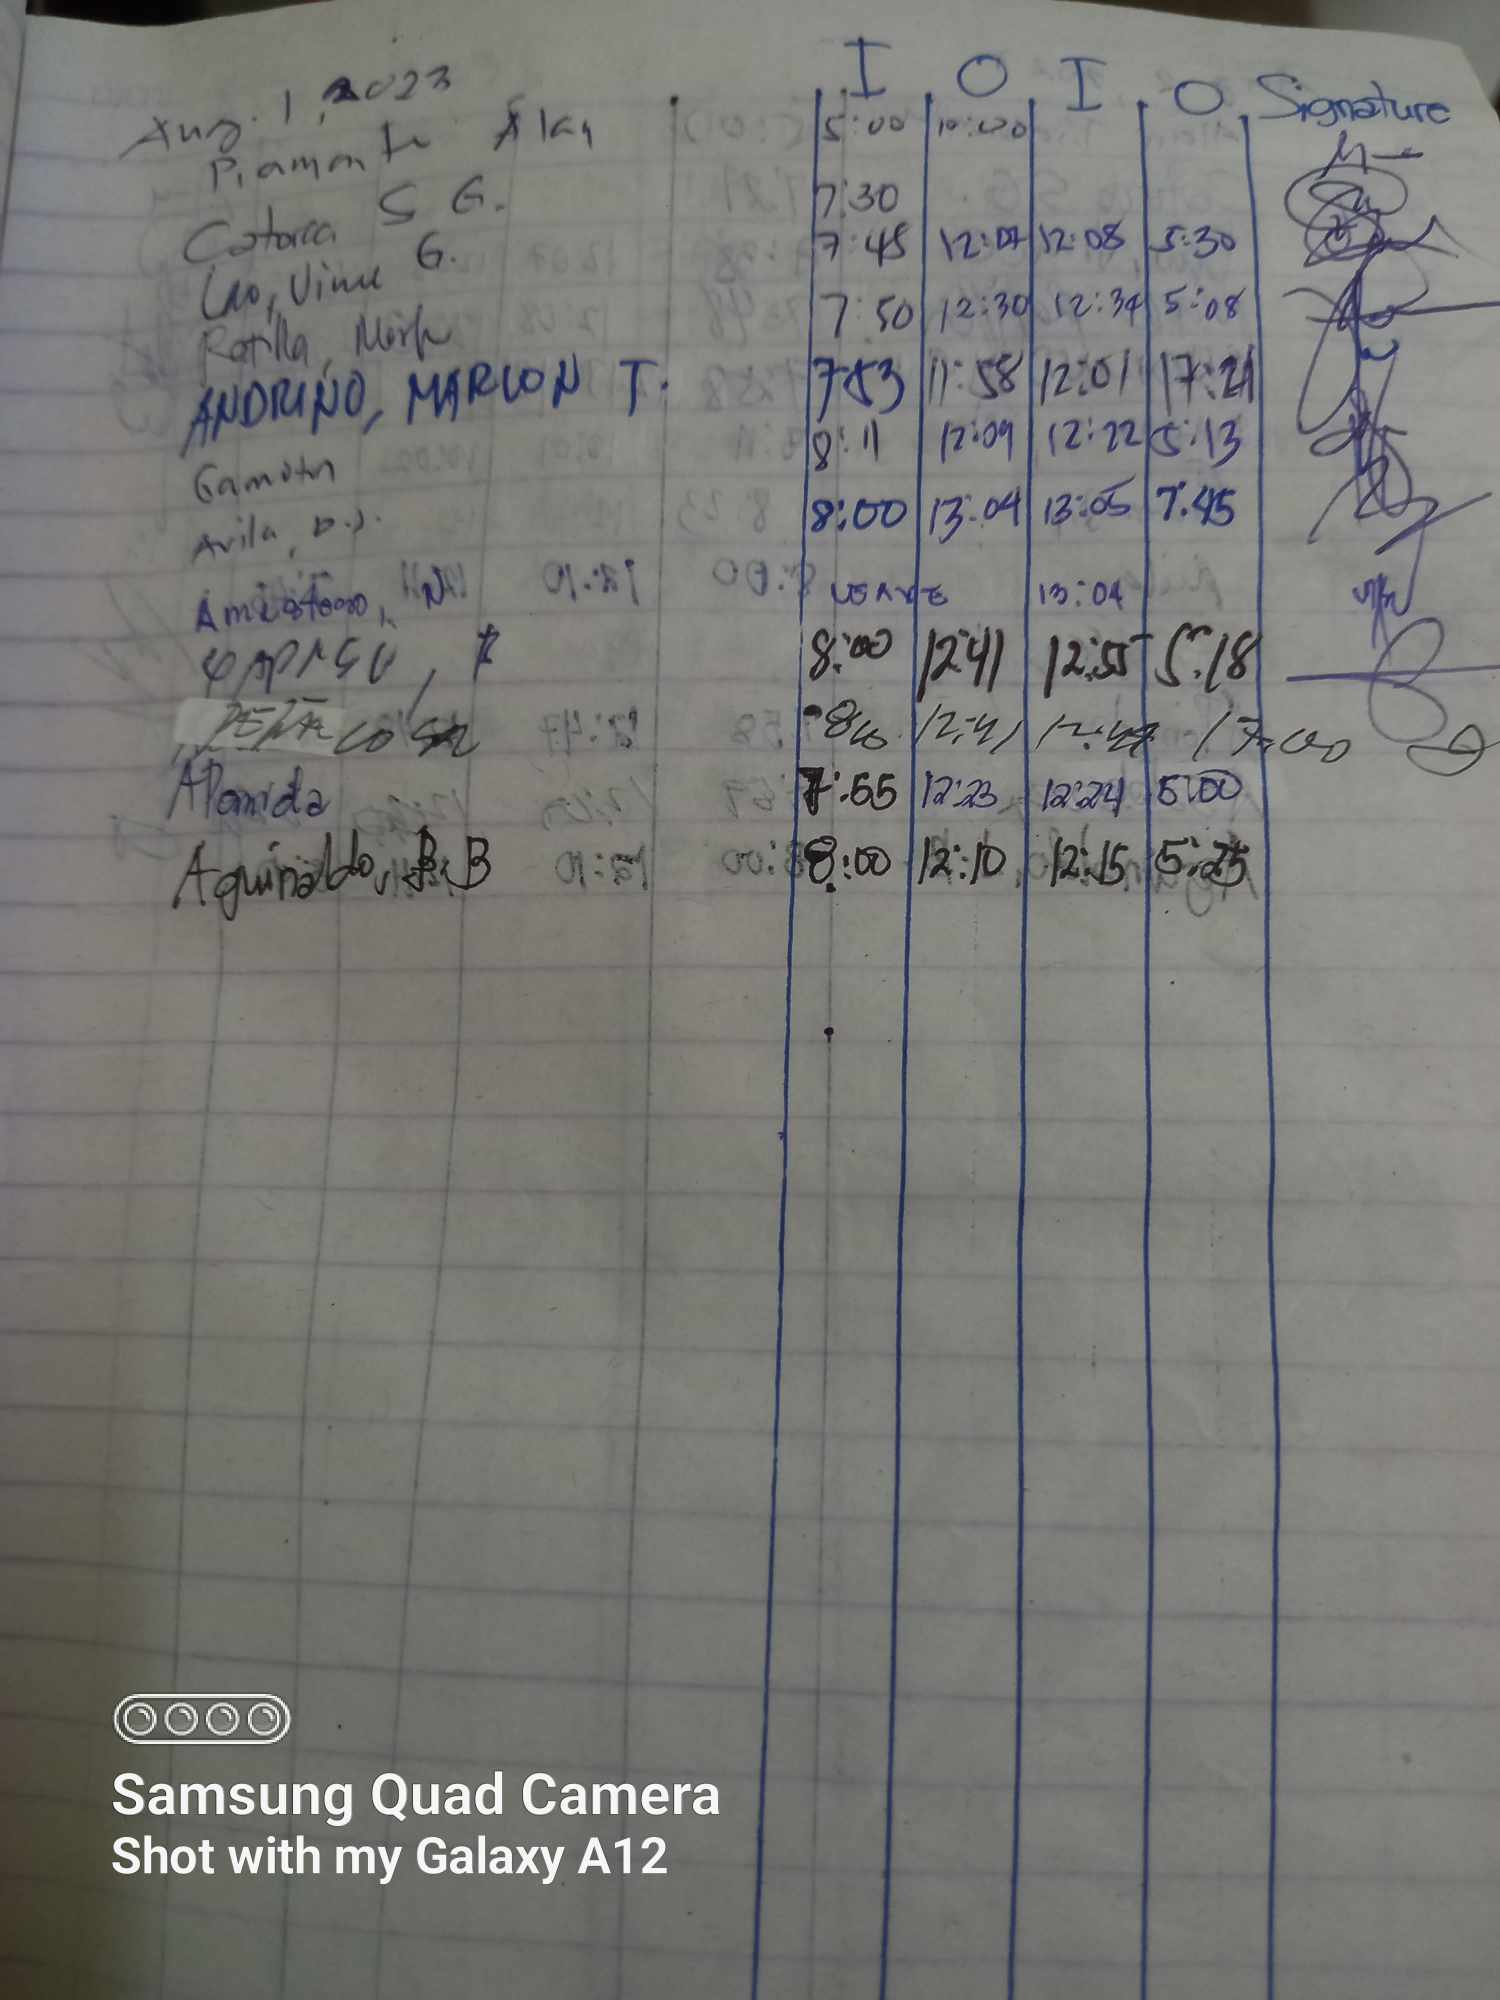 I O I O Signature
Aug. 1, 2023
Piamonte 5:00 10:00
Catorca S G. 7:30
Lao, Vince G. 7:45 12:07 12:08 5:30
Ratilla, Mark 7:50 12:30 12:34 5:08
ANDRINO, MARLON T. 7:53 11:58 12:01 17:21
Gamotin 8:11 12:09 12:22 5:13
Avila, D.J. 8:00 13:04 13:05 7:45
N. LEAVE 13:04
8:00 12:41 12:55 5:18
12:41 17:00
Alameda 7:55 12:23 12:24 5:00
Aguinaldo, B.B 8:00 12:10 12:15 5:25
Samsung Quad Camera
Shot with my Galaxy A12